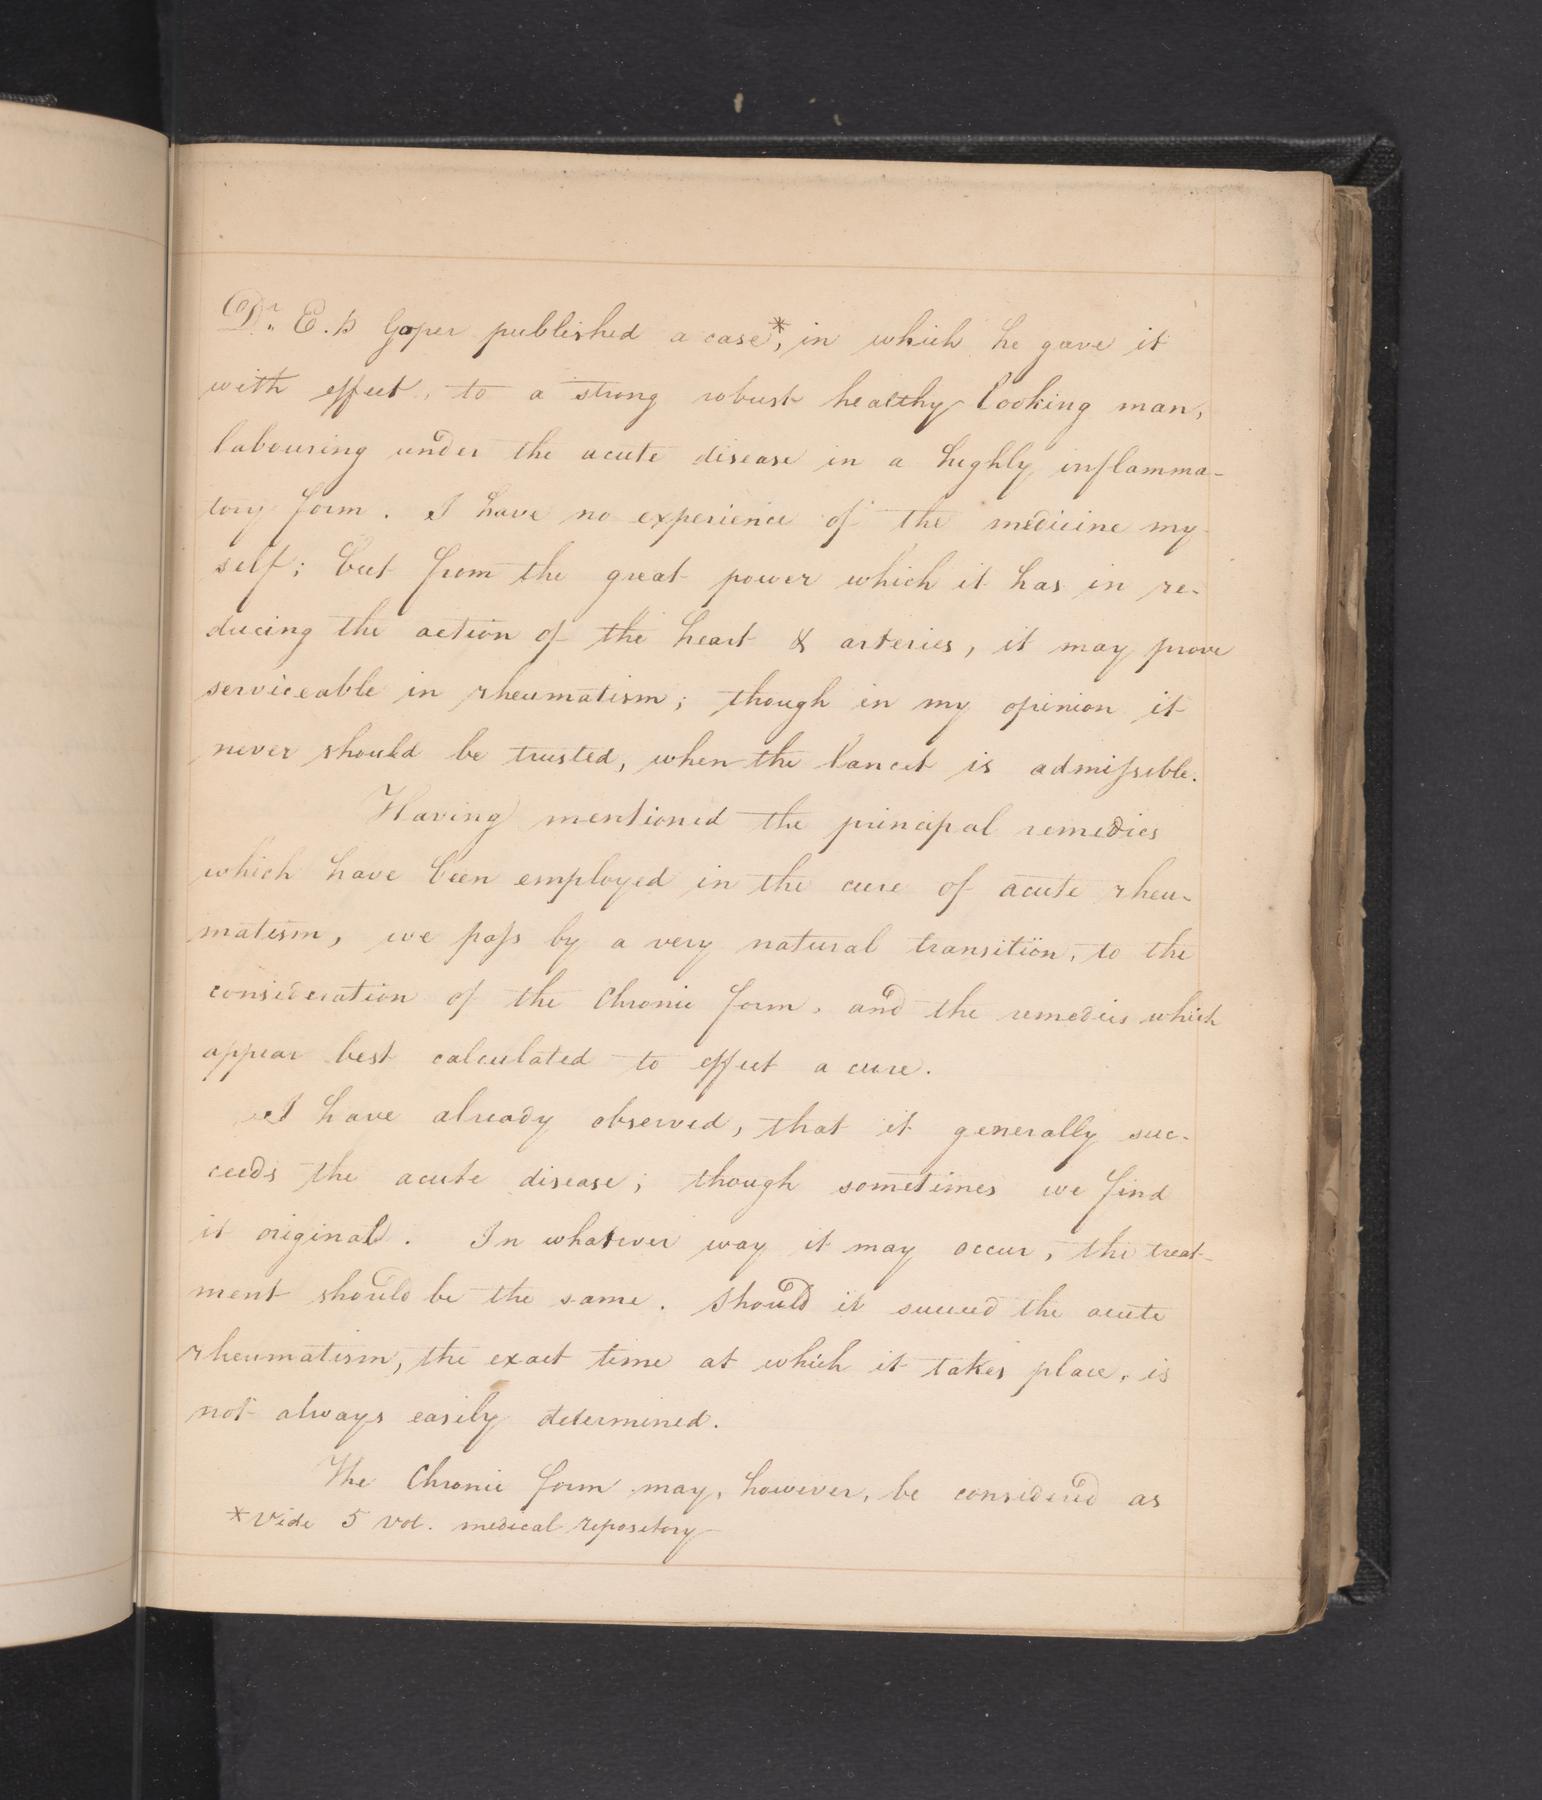 Dr. E. D Goper published a case*, in which he gave it
with effect, to a strong robust healthy looking man,
labouring under the acute disease in a highly inflamma-
tory form. I have no experience of the medicine my-
self; but from the great power which it has in re-
ducing the action of the heart & arteries, it may prove
serviceable in rheumatism; though in my opinion it
never should be trusted, when the lancet is admissible.
Having mentioned the principal remedies
which have been employed in the cure of acute rheu-
matism, we pass by a very natural transition, to the
consideration of the Chronic form, and the remedies which
appear best calculated to effect a cure.
I have already observed, that it generally suc-
ceeds the acute disease; though sometimes we find
it original. In whatever way it may occur, the treat-
ment should be the same. Should it succeed the acute
rheumatism, the exact time at which it takes place, is
not always easily determined.
The Chronic form may, however, be considered as
*Vide 5 vol. medical repository